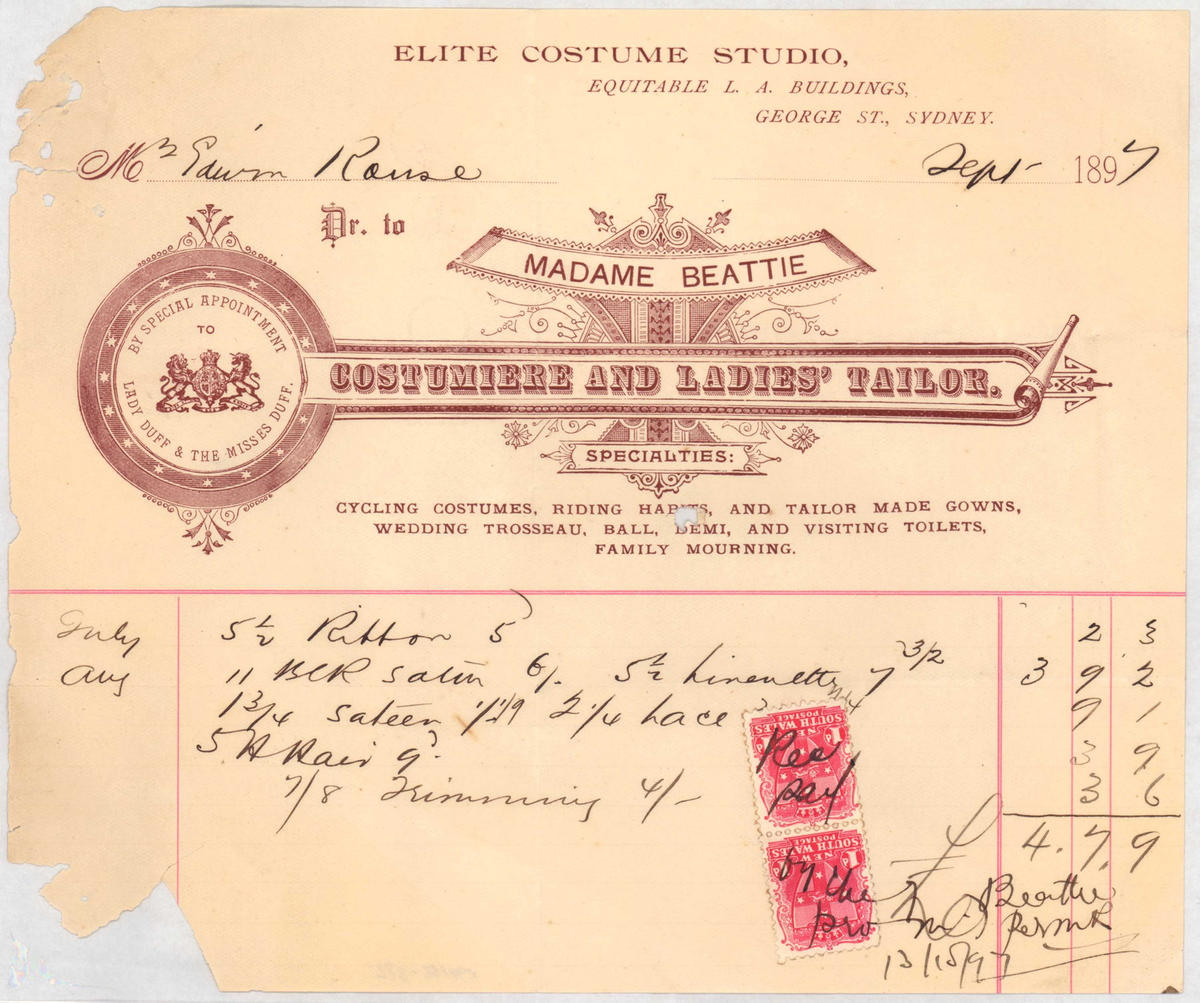 ELITE COSTUME STUDIO,
EQUITABLE L. A. BUILDINGS,
GEORGE ST., SYDNEY.
Mrs Edwin Rouse Sept 1897
Dr. to
MADAME BEATTIE
BY SPECIAL APPOINTMENT
TO
LADY DUFF & THE MISSES DUFF.
COSTUMIERE AND LADIES' TAILOR.
SPECIALTIES:
CYCLING COSTUMES, RIDING HABITS, AND TAILOR MADE GOWNS,
WEDDING TROSSEAU, BALL, DEMI, AND VISITING TOILETS,
FAMILY MOURNING.
July 5½ Ribbon 5 2 3
Aug 11 BLK Satin 6/- 5½ Linenette 7 3/2 3 9 2
1 3/4 Sateen 2 1/4 Lace 9 1
5 H Hair 9 3 9
7/8 Trimming 4/- 3 6
£ 4. 7. 9
NEW SOUTH WALES
POSTAGE
1 P
Rec
pay
NEW SOUTH WALES
POSTAGE
1 P
by the
M Beattie
pro
13/10/97